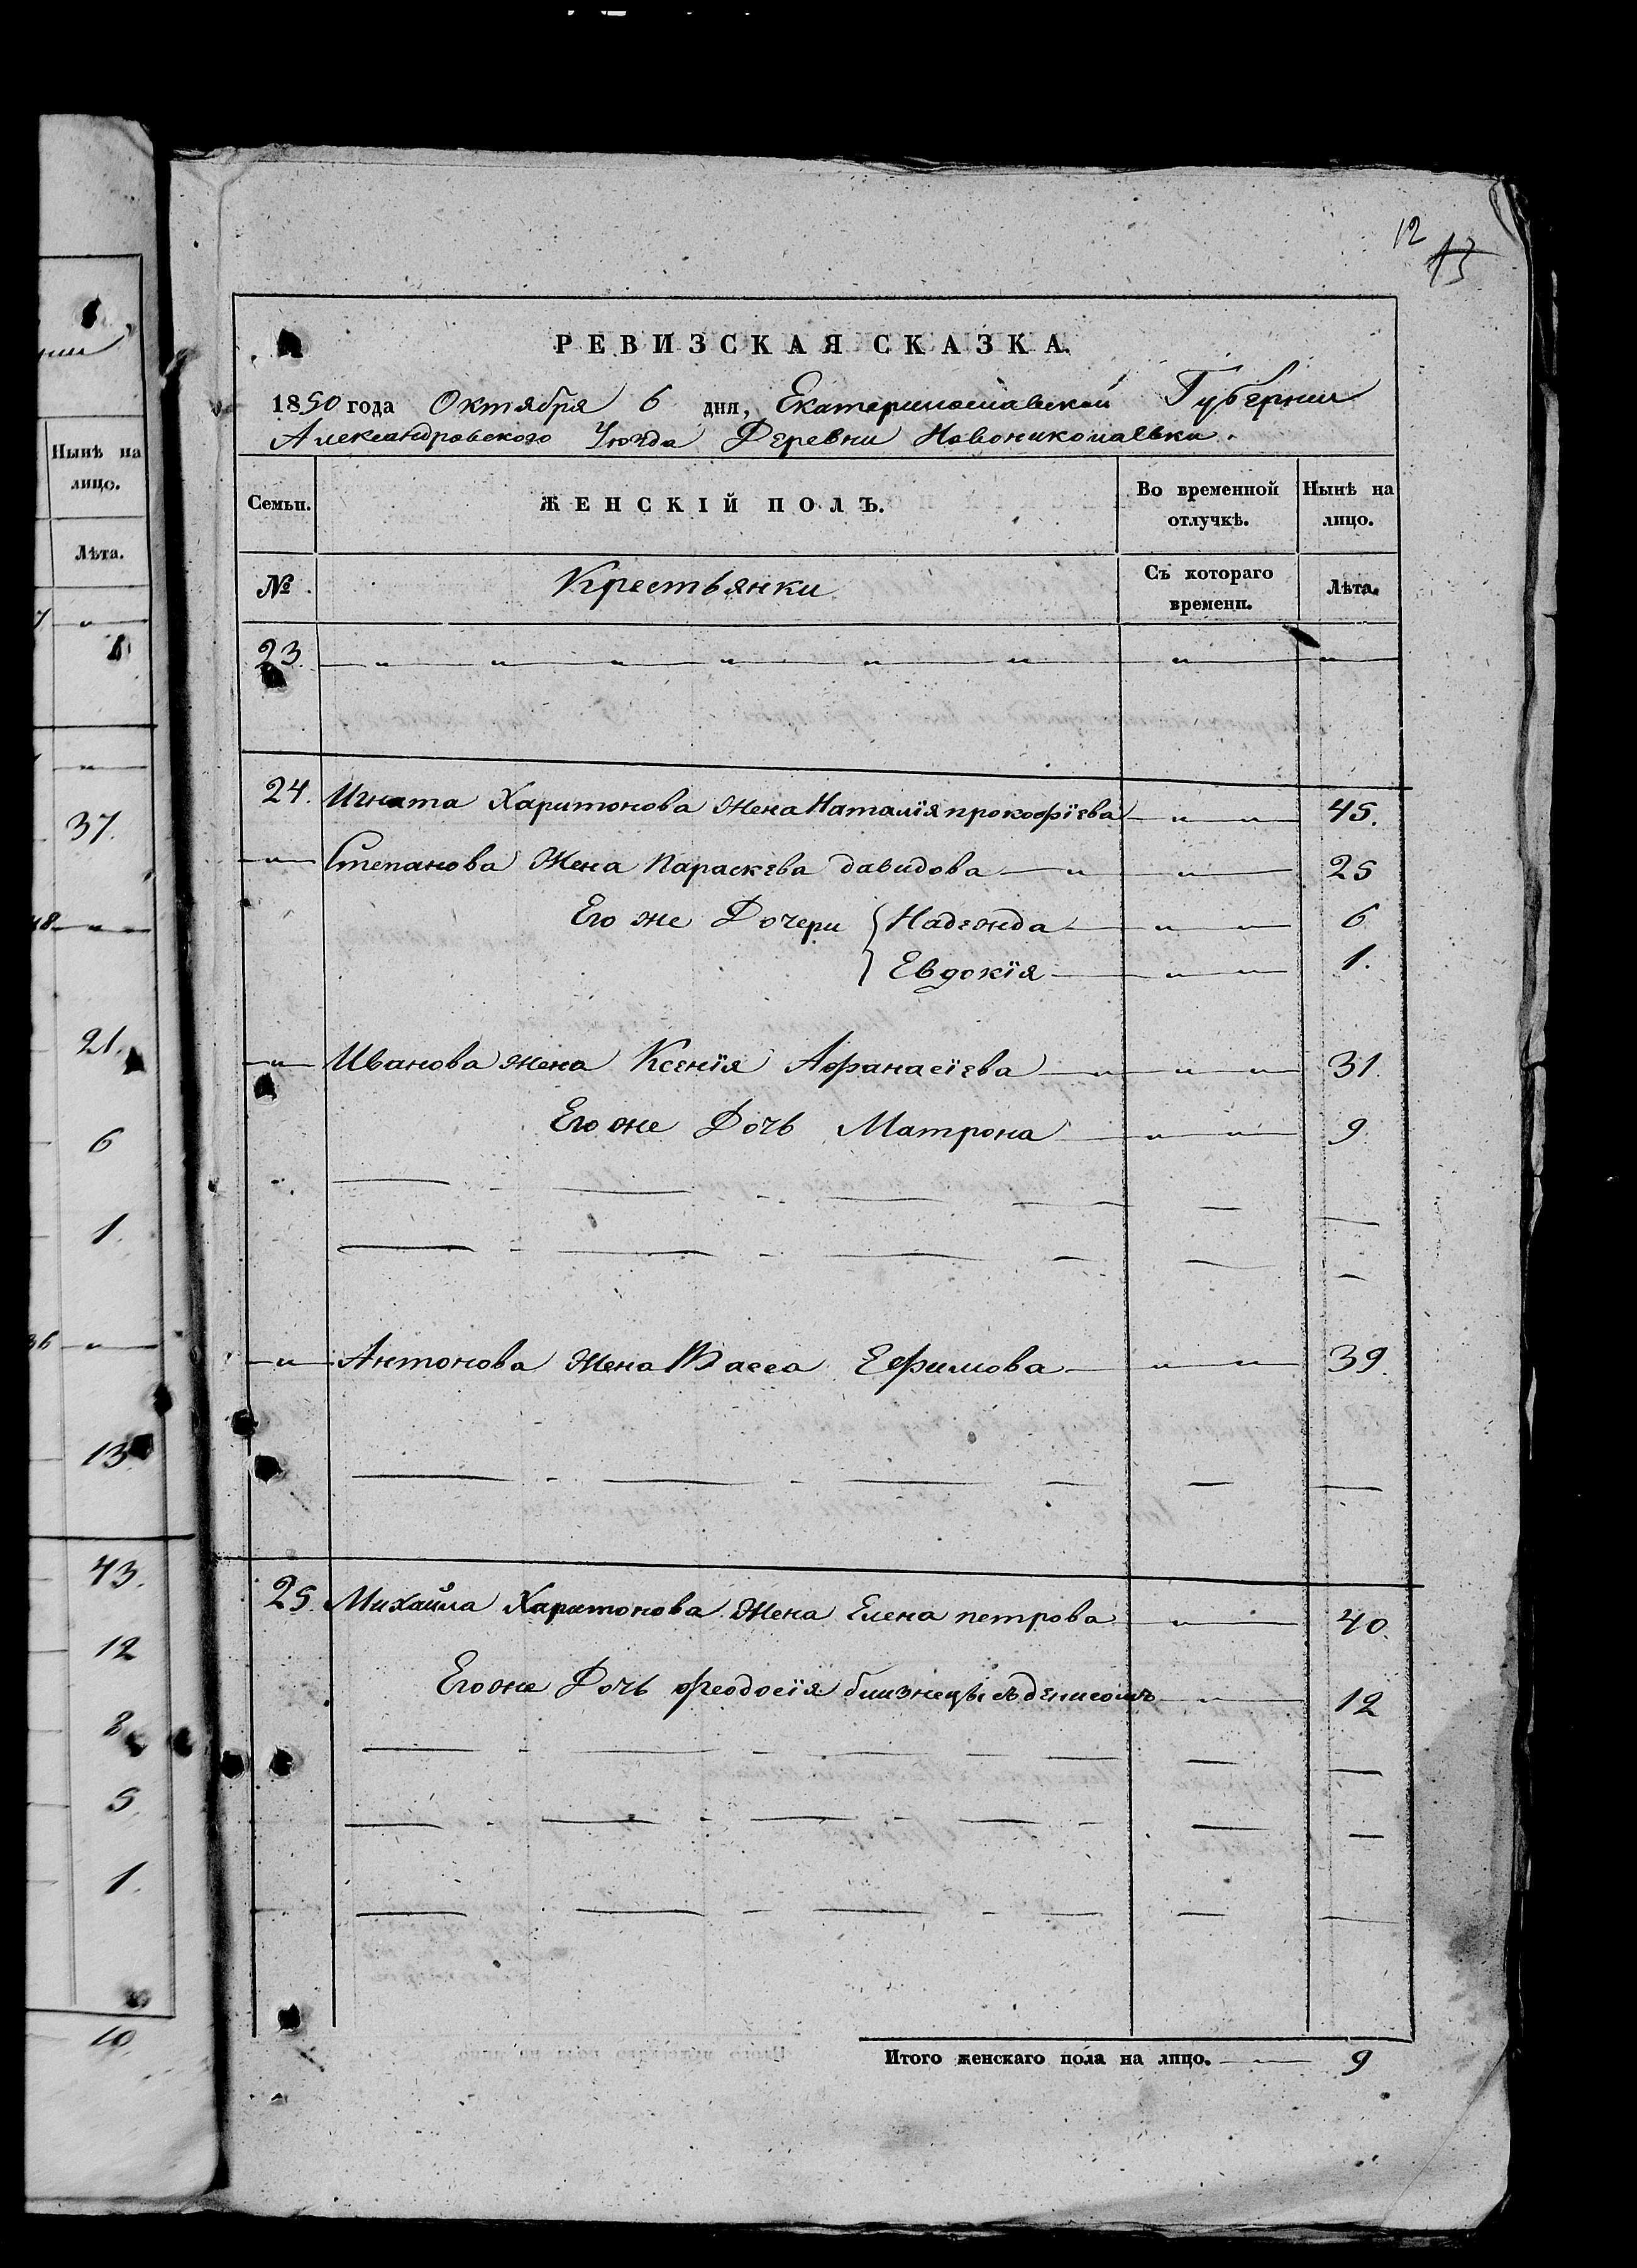 12 13
РЕВИЗСКАЯ СКАЗКА.
1850 года Октября 6 дня, Екатеринославской Губернии
Александровского Уезда Деревни Новониколаевки.
Семьи. ЖЕНСКІЙ ПОЛЪ. Во временной отлучкѣ. Нынѣ на лицо.
№ Крестьянки Съ котораго времени. Лѣта.
23
24. Игната Харитонова Жена Наталія прокофіева 45.
Степанова Жена Параскева давидова 25
Его же Дочери Надежда 6
Евдокія 1.
Иванова жена Ксенія Афанасіева 31.
Его же Дочь Матрона 9
Антонова Жена Васса Ефимова 39.
25. Михайла Харитонова Жена Елена петрова 40.
Его же Дочь феодосія близнецы съ денисомъ 12
Итого женскаго пола на лицо. 9
Нынѣ на
лицо.
Лѣта.
37.
21.
6
1.
13
43.
12
8
5.
1.
10.